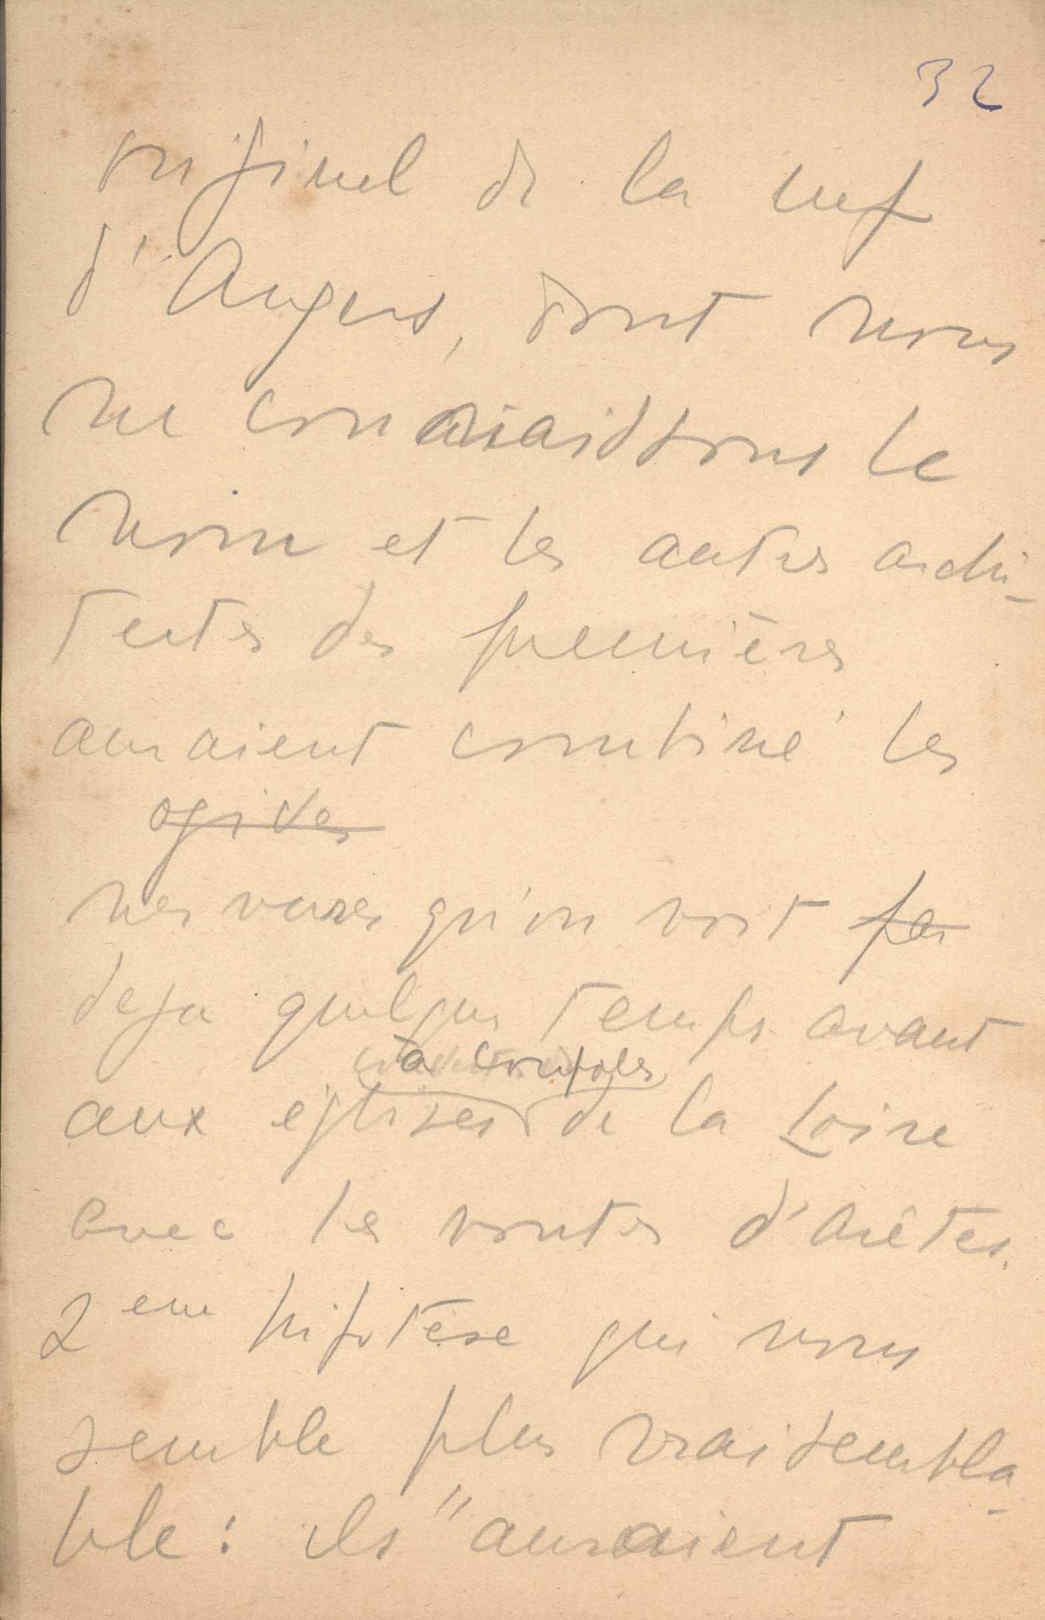 32
originel de la nef
d'Angers, dont nous
ne connaissons le
nom et les autres archi-
tectes des premières
auraient combiné les
ogives
nervures qu'on voit
deja quelques temps avant
à coupoles
aux églises de la Loire
avec les voutes d'arêtes.
2eme hipotèse qui nous
semble plus vraisembla-
ble : ils "auraient